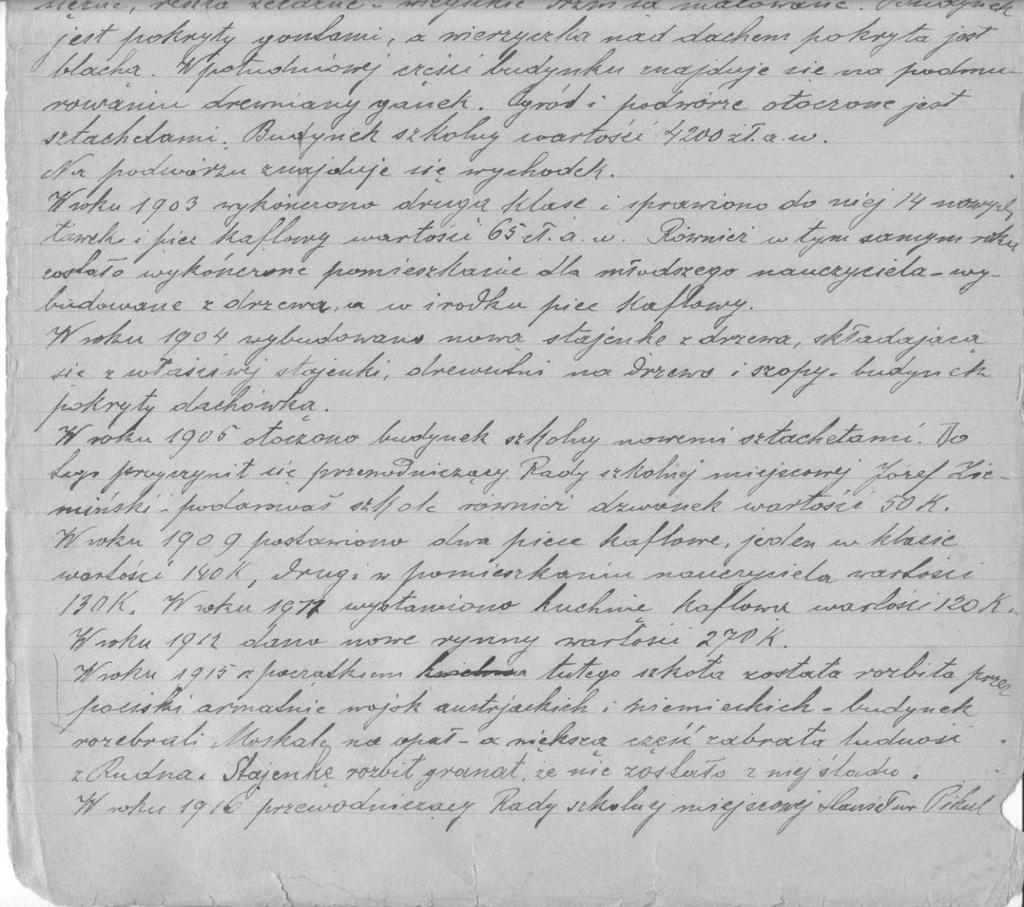 żelazne - wszystkie drzwi są malowane. Budynek
jest pokryty gontami, a wierzyczka nad dachem pokryta jest
blachą. W południowej części budynku znajduje się na podmu-
rowaniu drewniany ganek. Ogród i podwórze otoczone jest
sztachetami. Budynek szkolny wartości 4200 zł. a. w.
Na podwórzu znajduje się wychodek.
W roku 1903 wykończono drugą klasę i sprawiono do niej 14 nowych
ławek i piec kaflowy wartości 65 zł. a. w. Również w tym samym roku
zostało wykończone pomieszkanie dla młodszego nauczyciela - wy-
budowane z drzewa, a w środku piec kaflowy.
W roku 1904 wybudowano nową stajenkę z drzewa, składającą
się z właściwej stajenki, drewutni na drzewo i szopy - budynek
pokryty dachówką.
W roku 1905 otoczono budynek szkolny nowemi sztachetami. Do
tego przyczynił się przewodniczący Rady szkolnej miejscowej Józef Zie-
miński - podarował szkole również dzwonek wartości 50 K.
W roku 1909 postawiono dwa piece kaflowe, jeden w klasie
wartości 140 K, drugi w pomieszkaniu nauczyciela wartości
130 K. W roku 1911 wystawiono kuchnię kaflową wartości 120 K.
W roku 1912 dano nowe rynny wartości 270 K.
W roku 1915 z początkiem lutego szkoła została rozbita przez
pociski armatnie wojsk austrjackich i niemieckich - budynek
rozebrali Moskale na opał - a większą część zabrała ludność
z Rudna. Stajenkę rozbił granat, że nie zostało z niej śladu.
W roku 1916 przewodniczący Rady szkolnej miejscowej Stanisław Pikul